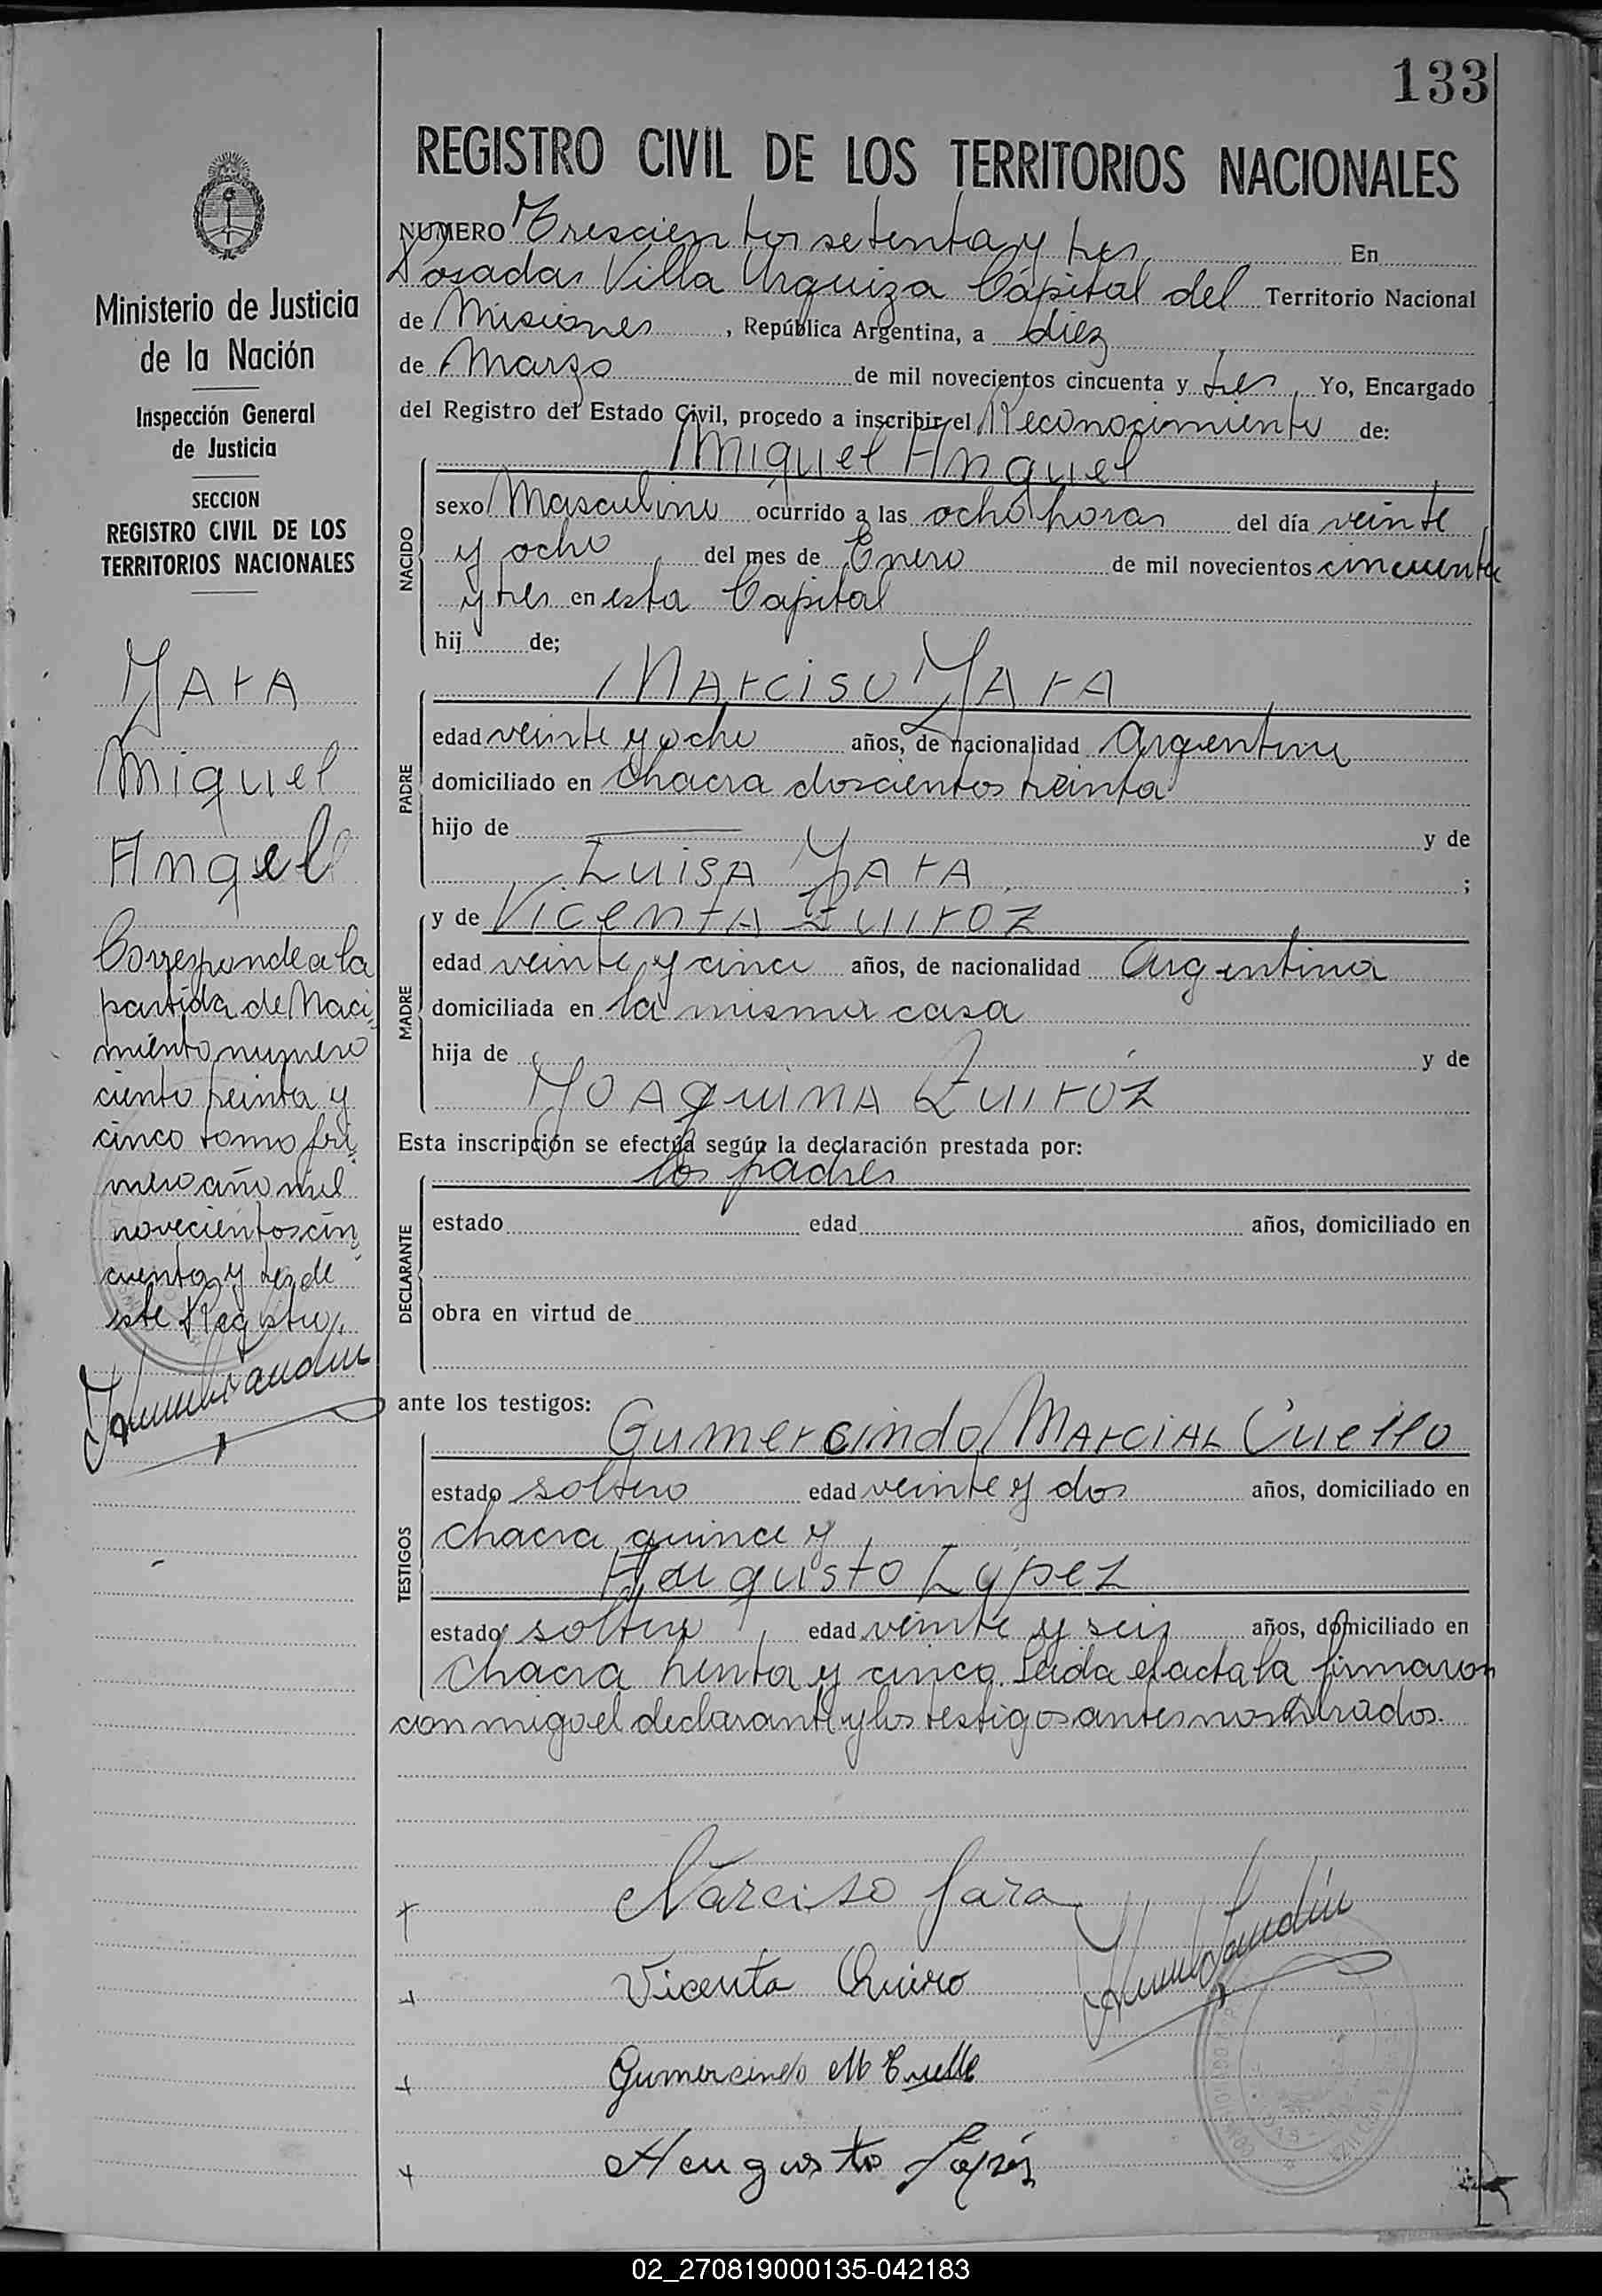 133
Ministerio de Justicia
de la Nación
Inspección General
de Justicia
SECCION
REGISTRO CIVIL DE LOS
TERRITORIOS NACIONALES
Yara
Miguel
Angel
Corresponde a la
partida de Naci-
miento numero
ciento treinta y
cinco tomo pri-
mero año mil
novecientos cin-
cuenta y tres de
este Registro.
REGISTRO CIVIL DE LOS TERRITORIOS NACIONALES
NUMERO Trescientos setenta y tres En
Posadas Villa Urquiza Cápital del Territorio Nacional
de Misiones, República Argentina, a diez
de Marzo de mil novecientos cincuenta y tres Yo, Encargado
del Registro del Estado Civil, procedo a inscribir el Reconocimiento de:
Miguel Anguel
NACIDO
sexo Masculino ocurrido a las ocho horas del día veinte
y ocho del mes de Enero de mil novecientos cincuenta
y tres en esta Capital
hij de;
Narciso Yara
PADRE
edad veinte y ocho años, de nacionalidad Argentino
domiciliado en Chacra doscientos treinta
hijo de y de
Luisa Yara ;
y de Vicenta Quiroz
MADRE
edad veinte y cinco años, de nacionalidad Argentina
domiciliada en la misma casa
hija de y de
Yoaquina Quiróz
Esta inscripción se efectúa según la declaración prestada por:
los padres
DECLARANTE
estado edad años, domiciliado en
obra en virtud de
ante los testigos:
Gumercindo Marcial Cuello
TESTIGOS
estado soltero edad veinte y dos años, domiciliado en
Chacra quince y
Heugusto López
estado soltero edad veinte y seis años, domiciliado en
Chacra treinta y cinco. Leida el acta la firmaron
conmigo el declarante y los testigos antes nombrados.
Narciso Jara
Vicenta Quiro
Gumercindo M Cuello
Heugusto López
02_270819000135-042183